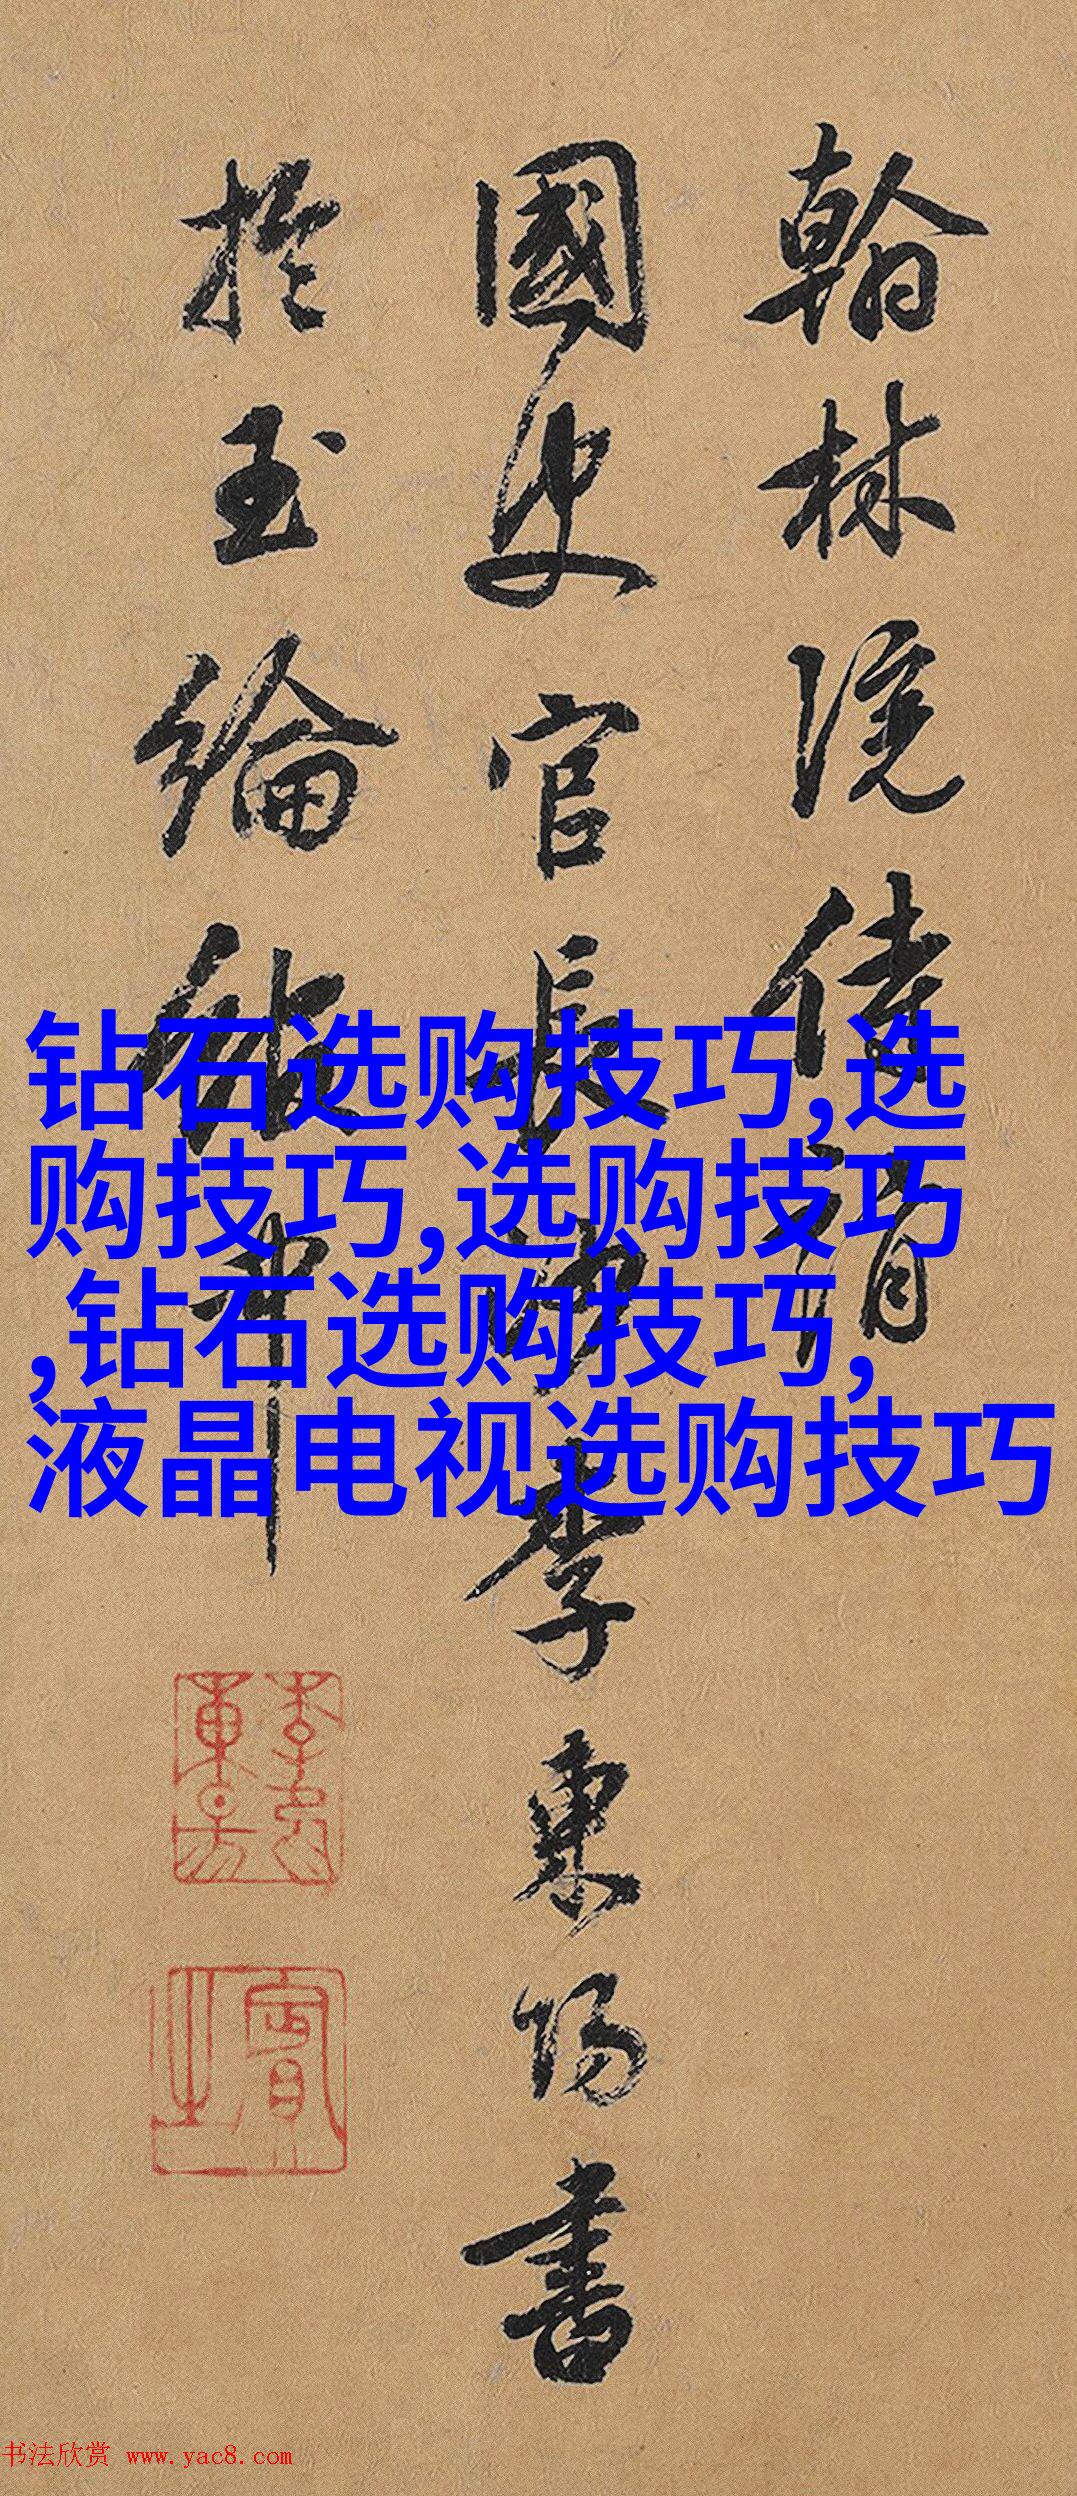 翰林院侍
國史官長沙李東陽書
於玉綸中
钻石选购技巧,选
购技巧,选购技巧
,钻石选购技巧,
液晶电视选购技巧
书法欣赏 www.yac8.com